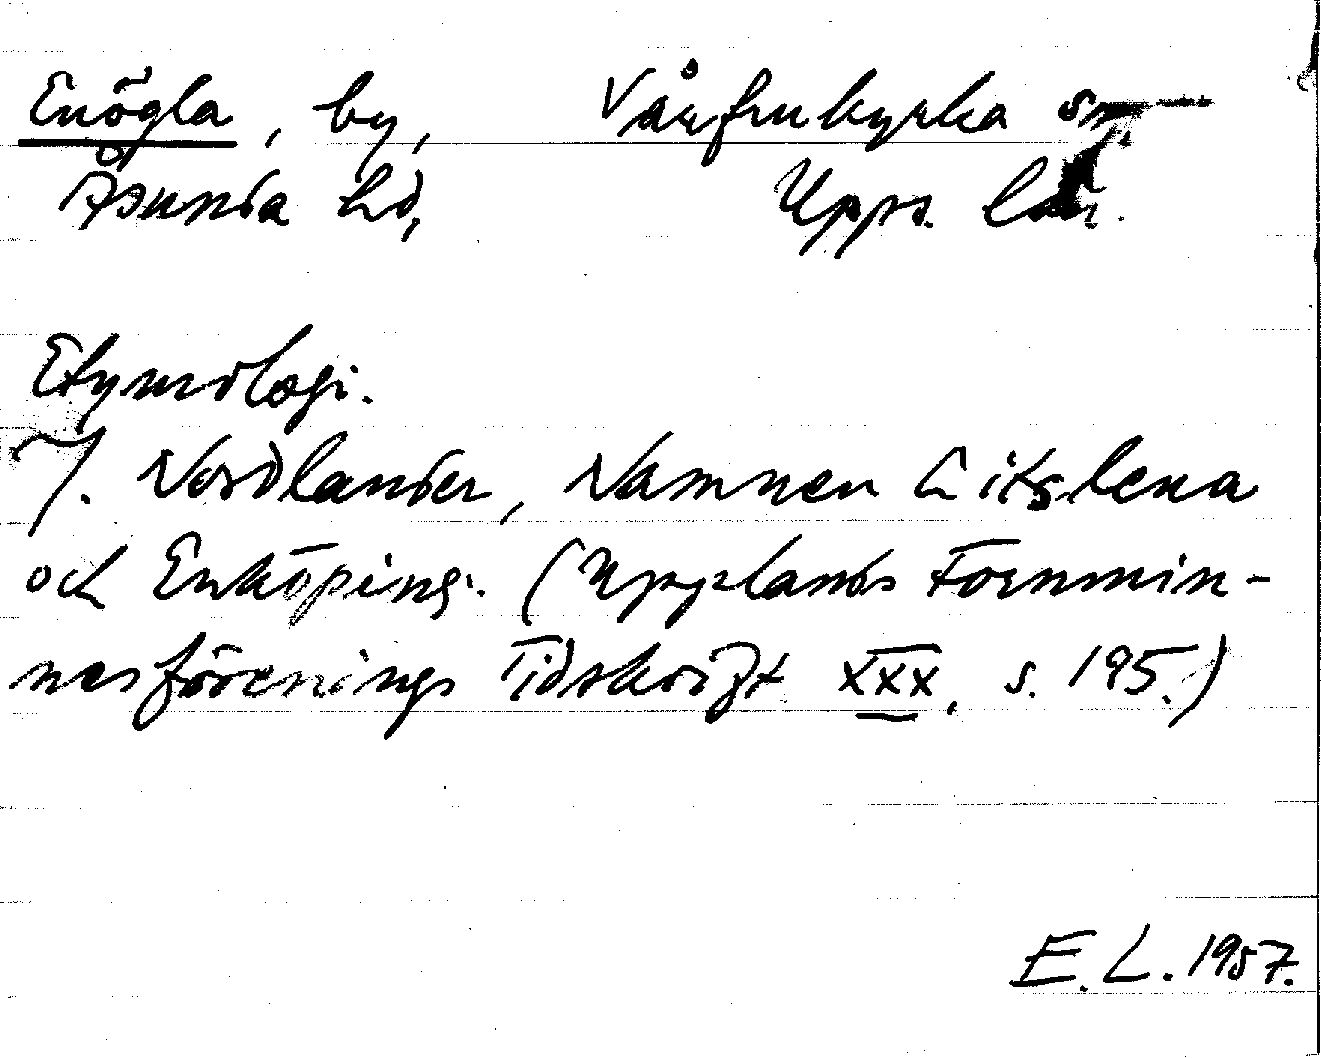 Enögla, by, Vårfrukyrka sn
Åsunda hd, Upps. län.
Etymologi.
J. Nordlander, Namnen Litslena
och Enköping. (Upplands Fornmin-
nesförenings Tidskrift XXX, s. 195.)
E. L. 1957.